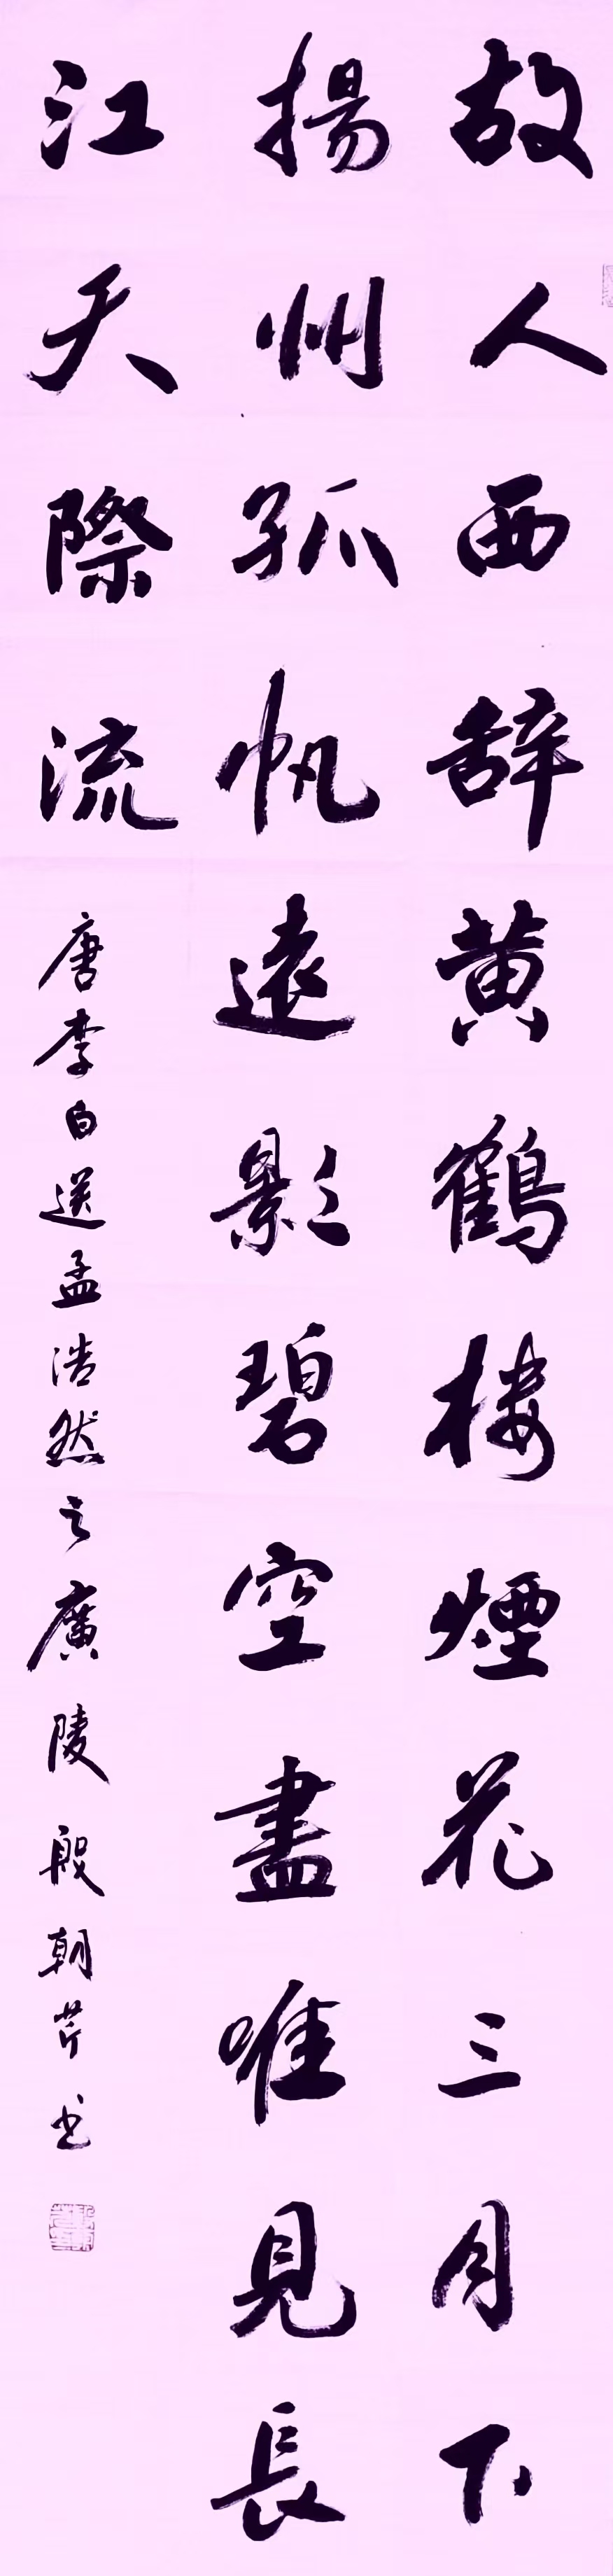 故人西辞黄鶴楼煙花三月下
揚州孤帆遠影碧空盡唯見長
江天際流
唐李白送孟浩然之廣陵殷朝芹书